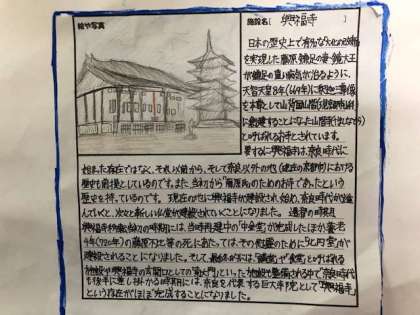 絵や写真
施設名( 興福寺 )
日本の歴史上で有名な大化の改新
を実現した藤原鎌足の妻・鏡大王
が鎌足の重い病気が治るように、
天智天皇8年(669年)に釈迦三尊像
を本尊として山背国山階(現京都市山科)
に創建することになった山階寺(やましなでら)
と呼ばれるお寺とされています。
要するに興福寺は、奈良時代に
始まった存在ではなく、それ以前から、そして奈良以外の地(現在の京都府)における
歴史も前提としているのです。また、当初から「藤原氏のためのお寺」であったという
歴史を持っているのです。 現在の地に興福寺が建設され始め、奈良時代が進
んでいくと、次々と新しい仏堂が建設されていくことになりました。
興福寺
当初の時期には、当時再建中の「中金堂」が完成したほか養老
4年(720年)の藤原不比等の死にあたっては、その供養のために「北円堂」が
建設されることになりました。そして、
施設や興福寺の玄関口としての「南大門」といった施設も整備される中で奈良時代
も後半に差し掛かる時期には、奈良を代表する巨大寺院として「興福寺」
という存在がほぼ完成することになりました。